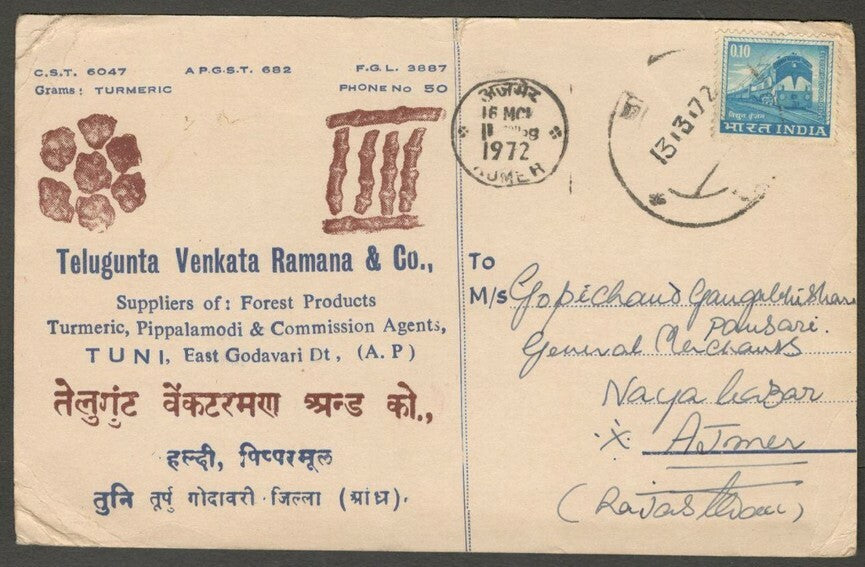 C.S.T. 6047 A.P.G.S.T. 682 F.G.L. 3887
Grams: TURMERIC PHONE No 50
Telugunta Venkata Ramana & Co.,
Suppliers of: Forest Products
Turmeric, Pippalamodi & Commission Agents,
TUNI, East Godavari Dt, (A. P)
तेलुगुंट वेंकटरमण अन्ड को.,
हल्दी, पिप्परमूल
तुनि तूर्पु गोदावरी जिल्ला (आंध्र).
अजमेर
16 MCH
1972
AJMER
13.3.72
0.10
विद्युत इंजन
भारत INDIA
To
M/s Gopichand Gangabhishan
Pansari.
General Merchants
Naya bazar
Ajmer
(Rajasthan)